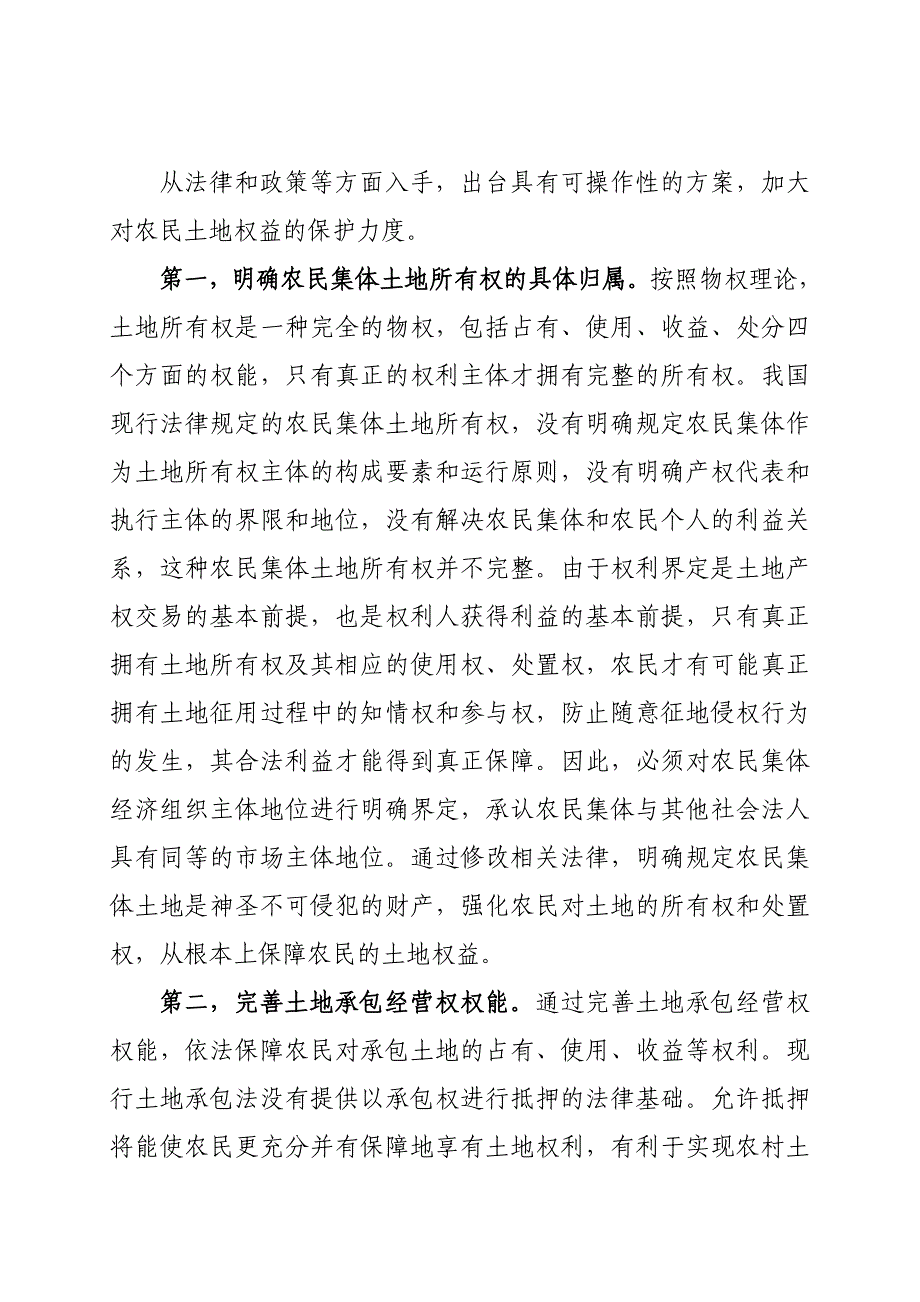 从法律和政策等方面入手，出台具有可操作性的方案，加大
对农民土地权益的保护力度。
第一，明确农民集体土地所有权的具体归属。按照物权理论，
土地所有权是一种完全的物权，包括占有、使用、收益、处分四
个方面的权能，只有真正的权利主体才拥有完整的所有权。我国
现行法律规定的农民集体土地所有权，没有明确规定农民集体作
为土地所有权主体的构成要素和运行原则，没有明确产权代表和
执行主体的界限和地位，没有解决农民集体和农民个人的利益关
系，这种农民集体土地所有权并不完整。由于权利界定是土地产
权交易的基本前提，也是权利人获得利益的基本前提，只有真正
拥有土地所有权及其相应的使用权、处置权，农民才有可能真正
拥有土地征用过程中的知情权和参与权，防止随意征地侵权行为
的发生，其合法利益才能得到真正保障。因此，必须对农民集体
经济组织主体地位进行明确界定，承认农民集体与其他社会法人
具有同等的市场主体地位。通过修改相关法律，明确规定农民集
体土地是神圣不可侵犯的财产，强化农民对土地的所有权和处置
权，从根本上保障农民的土地权益。
第二，完善土地承包经营权权能。通过完善土地承包经营权
权能，依法保障农民对承包土地的占有、使用、收益等权利。现
行土地承包法没有提供以承包权进行抵押的法律基础。允许抵押
将能使农民更充分并有保障地享有土地权利，有利于实现农村土